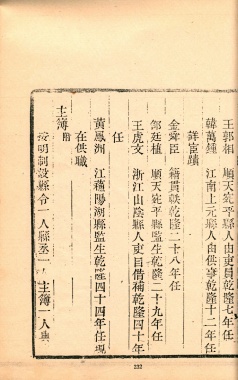 王郭祖 順天宛平縣人由吏員乾隆
韓萬鍾 江南上元縣人由供事乾隆十二年任
詳宦蹟
金舜臣 籍貫軼乾隆二十八年任
鄒廷植 順天宛平縣監生乾隆二十九年任
王虎文 浙江山陰縣人吏目借補乾隆四十年
任
黃鳳洲 江蘇陽湖縣監生乾隆四十四年任現
在供職
主簿
按明制設縣令一人縣丞一人主簿一人典
232